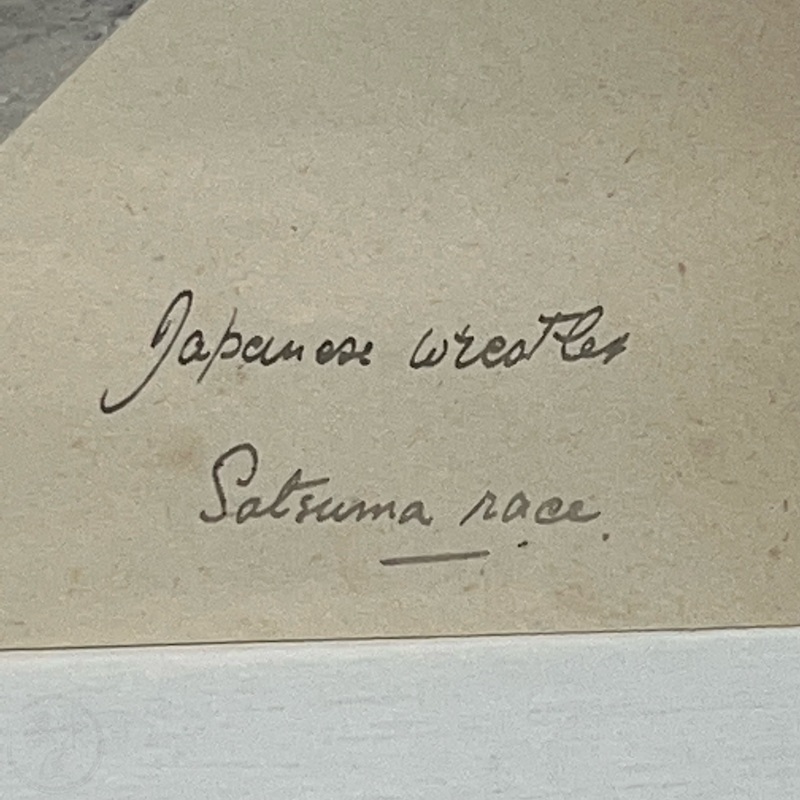 Japanese wrestler
Satsuma race.